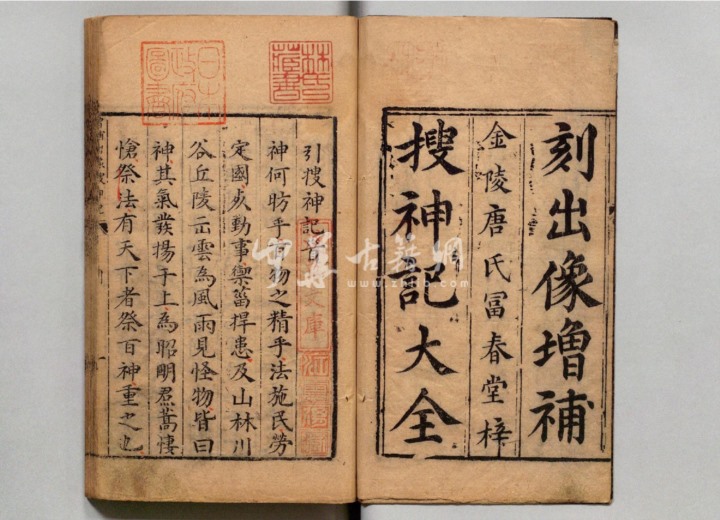 刻出像增補
金陵唐氏冨春堂梓
搜神記大全
引搜神記首
神何昉乎有物之精乎法施民勞
定國及勤事禦菑捍患及山林川
谷丘陵云雲為風雨見怪物皆曰
神其氣發揚于上為昭明焄蒿悽
愴祭法有天下者祭百神重之也
日本
政府
圖書
林氏
藏書
文庫